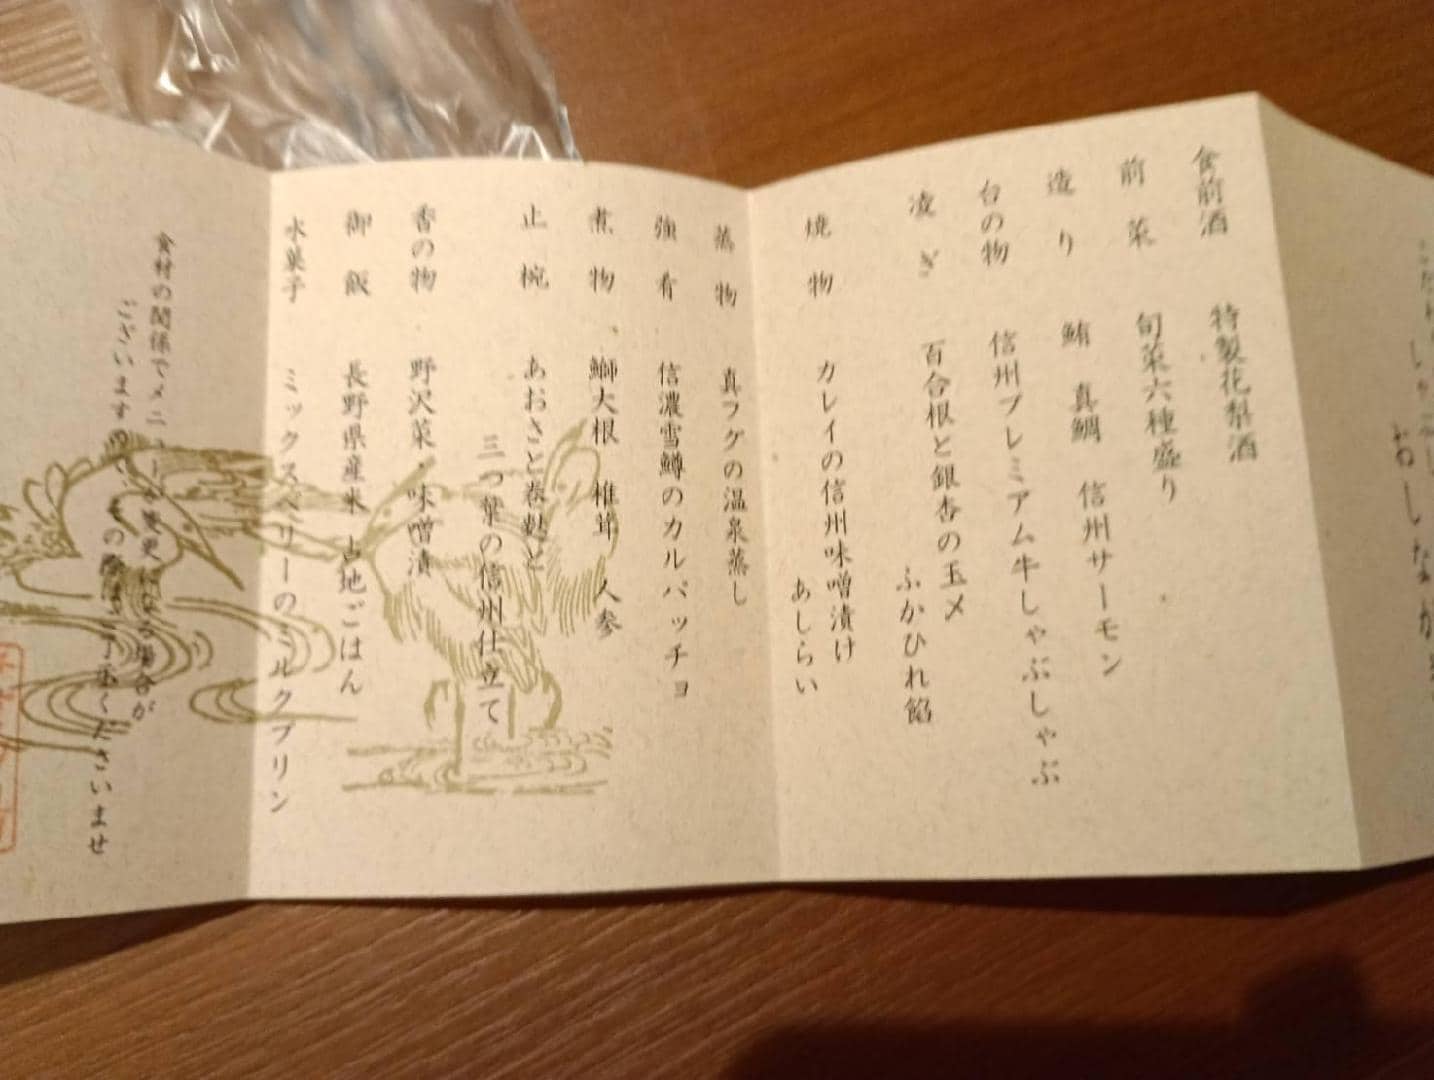 おしながき
食前酒 特製花梨酒
前菜 旬菜六種盛り
造り 鮪 真鯛 信州サーモン
台の物 信州プレミアム牛しゃぶしゃぶ
凌ぎ 百合根と銀杏の玉〆
ふかひれ餡
焼物 カレイの信州味噌漬け
あしらい
蒸物 真フグの温泉蒸し
強肴 信濃雪鱒のカルパッチョ
煮物 鰤大根 椎茸 人参
止椀 あおさと巻麩と
三つ葉の信州仕立て
香の物 野沢菜 味噌漬
御飯 長野県産米 占地ごはん
水菓子 ミックスベリーのミルクプリン
食材の関係でメニューが変更になる場合が
ございますので、その際はご了承くださいませ